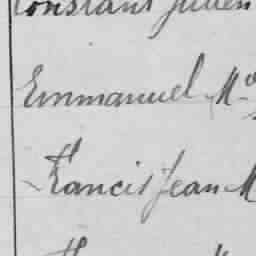 Constant Julien
Emmanuel M
Francis Jean M